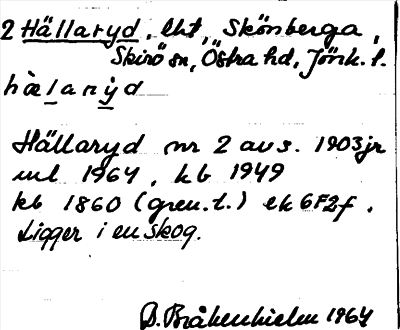 2 Hällaryd, lht, Skönberga,
Skirö sn, Östra hd, Jönk. l.
hæ̀lanẏd
Hällaryd nr 2 av s. 1903 jr
ml 1964, kb 1949
kb 1860 (gren.l.) ek 6F2f.
Ligger i en skog.
D. Bråkenhielm 1964